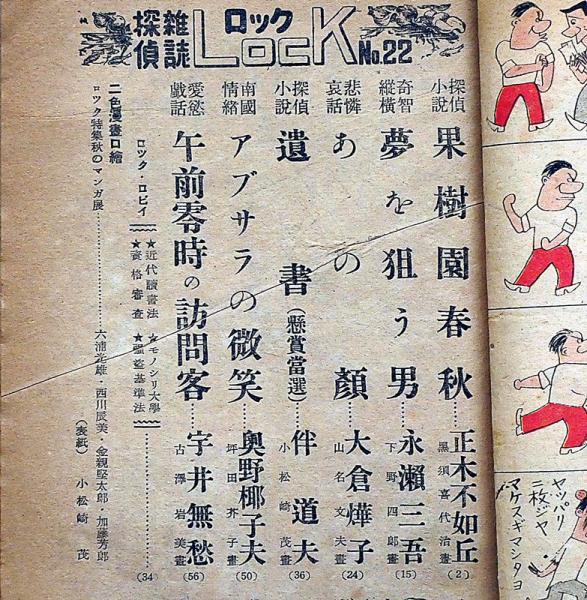 探偵雑誌
ロック
LOCK
No.22
探偵小説 果樹園春秋……正木不如丘 黒須喜代治畫 (2)
奇智縦横 夢を狙う男……永瀬三吾 下野四郎畫 (15)
悲憐哀話 あの顏……大倉燁子 山名文夫畫 (24)
探偵小説 遺書(懸賞當選)……伴道夫 小松崎茂畫 (36)
南國情緒 アブサラの微笑……奥野椰子夫 坪田芥子畫 (50)
愛慾戲話 午前零時の訪問客……宇井無愁 古澤岩美畫 (56)
ロック・ロビイ ★近代讀書法 ★モノシリ大學 ★資格審査 ★強盗基準法 (34)
二色漫畫口繪
ロック特集秋のマンガ展……六浦光雄・西川辰美・金親堅太郎・加藤芳郎
(表紙) 小松崎茂
ヤッパリ
二枚ジヤ
マケスギマシタヨ